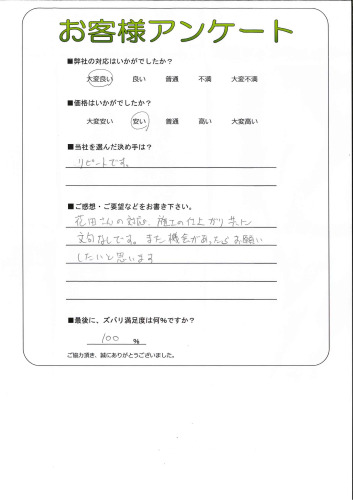 お客様アンケート
■弊社の対応はいかがでしたか？
大変良い 良い 普通 不満 大変不満
■価格はいかがでしたか？
大変安い 安い 普通 高い 大変高い
■当社を選んだ決め手は？
リピートです。
■ご感想・ご要望などをお書き下さい。
花田さんの対応、施工の仕上がり
文句なしです。また機会があったらお願い
したいと思います
■最後に、ズバリ満足度は何%ですか？
100 %
ご協力頂き、誠にありがとうございました。